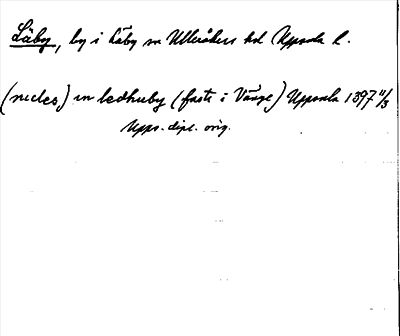 Läby, by i Läby sn Ulleråkers hd Uppsala l.
(nedes) in ledhuby (faste i Vänge) Uppsala 1397 11/3
Upps. dipl. orig.